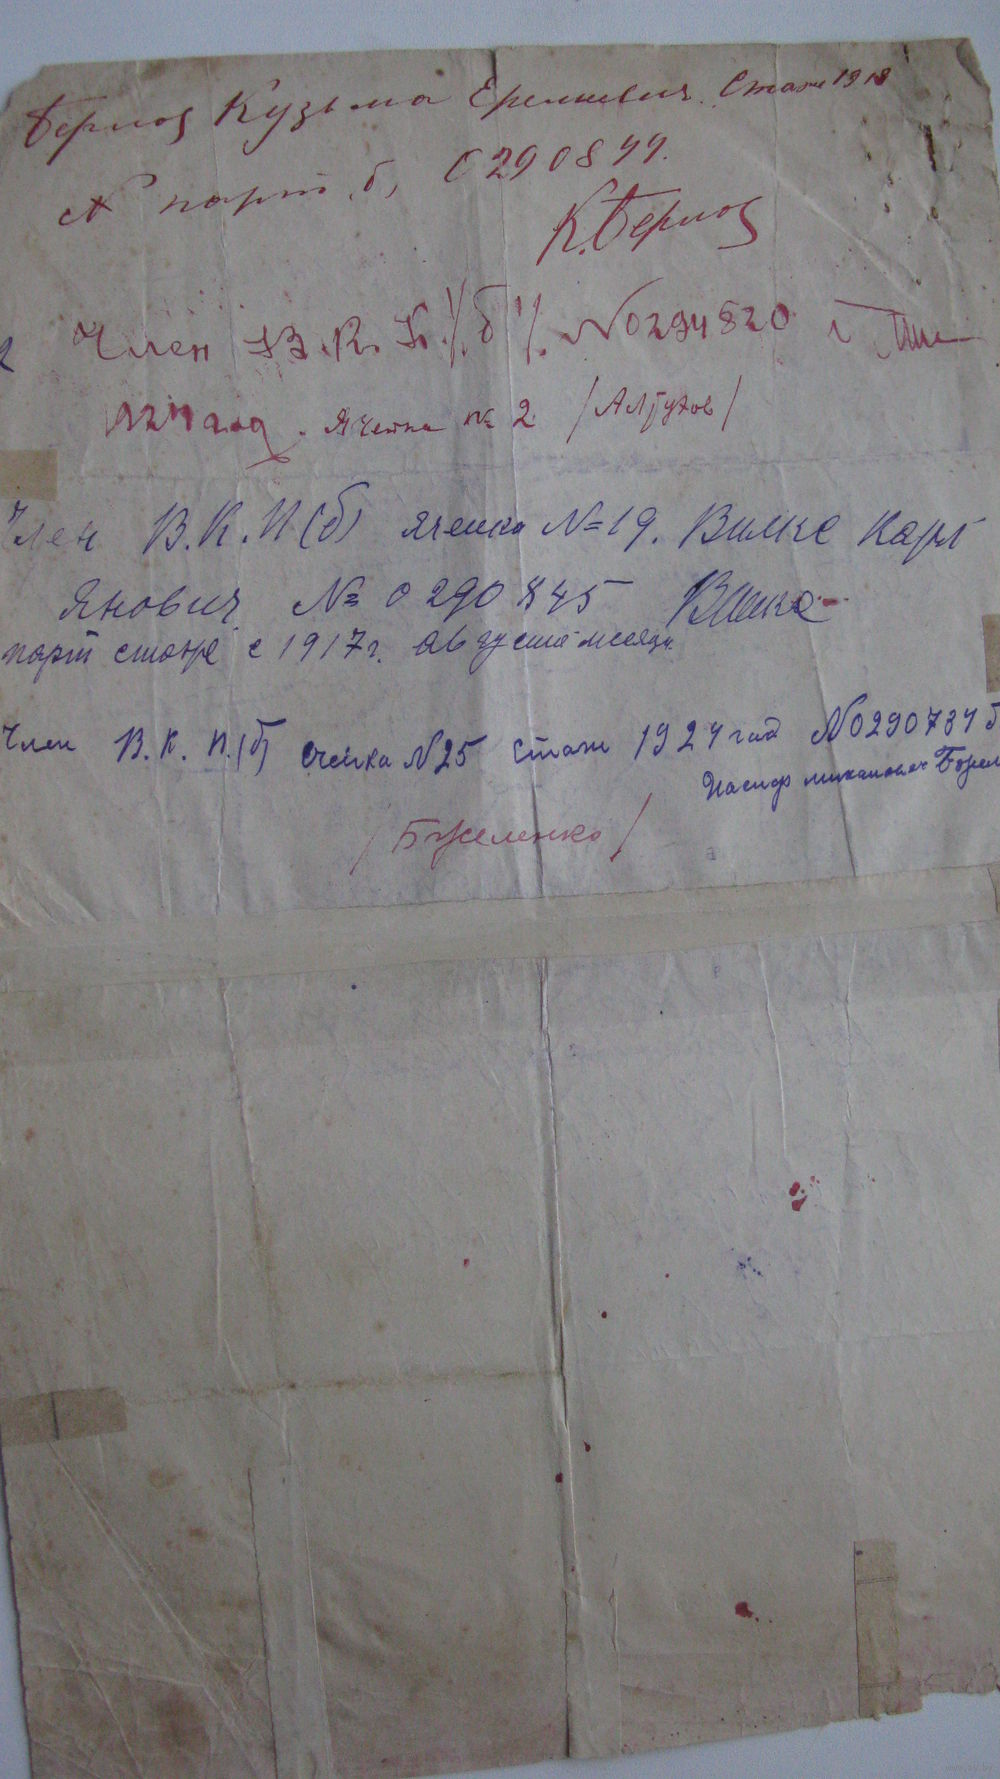 Берлов Кузьма Еремеевич. Стаж 1918
N парт. б, 0290899.
К. Берлов
Член В.К.П. /б"/. N0294820
1924 год. Ячейка № 2 /Алтухов/
Член В.К.П(б) ячейка N=19. Вилке Карл
Янович N= 0290845 Вилке
парт стаже с 1917 г. августа месяца
Член В.К.П.(б) ячейка N25 стаж 1924 год N0290734
/Бужеленко/